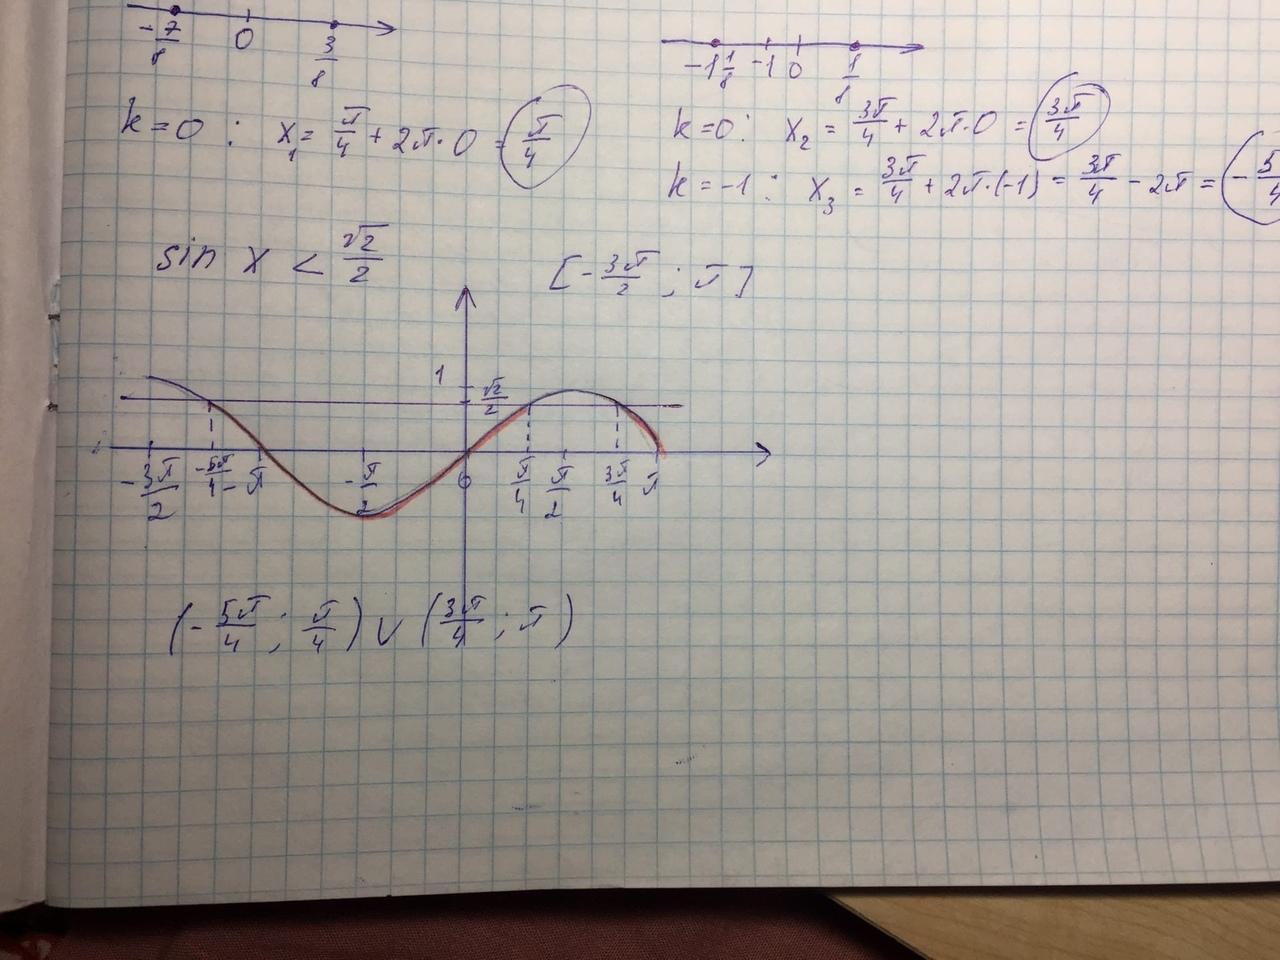 -7/8 0 3/8
-1 1/8 -1 0 1/8
k=0 : x₁= π/4 + 2π·0 = π/4
k=0 : x₂ = 3π/4 + 2π·0 = 3π/4
k=-1 : x₃ = 3π/4 + 2π·(-1) = 3π/4 - 2π = -5/4
sin x < √2/2 [-3π/2 ; π]
1 √2/2
-3π/2 -5π/4 -π -π/2 0 π/4 π/2 3π/4 π
(-5π/4 ; π/4) ∨ (3π/4 ; π)